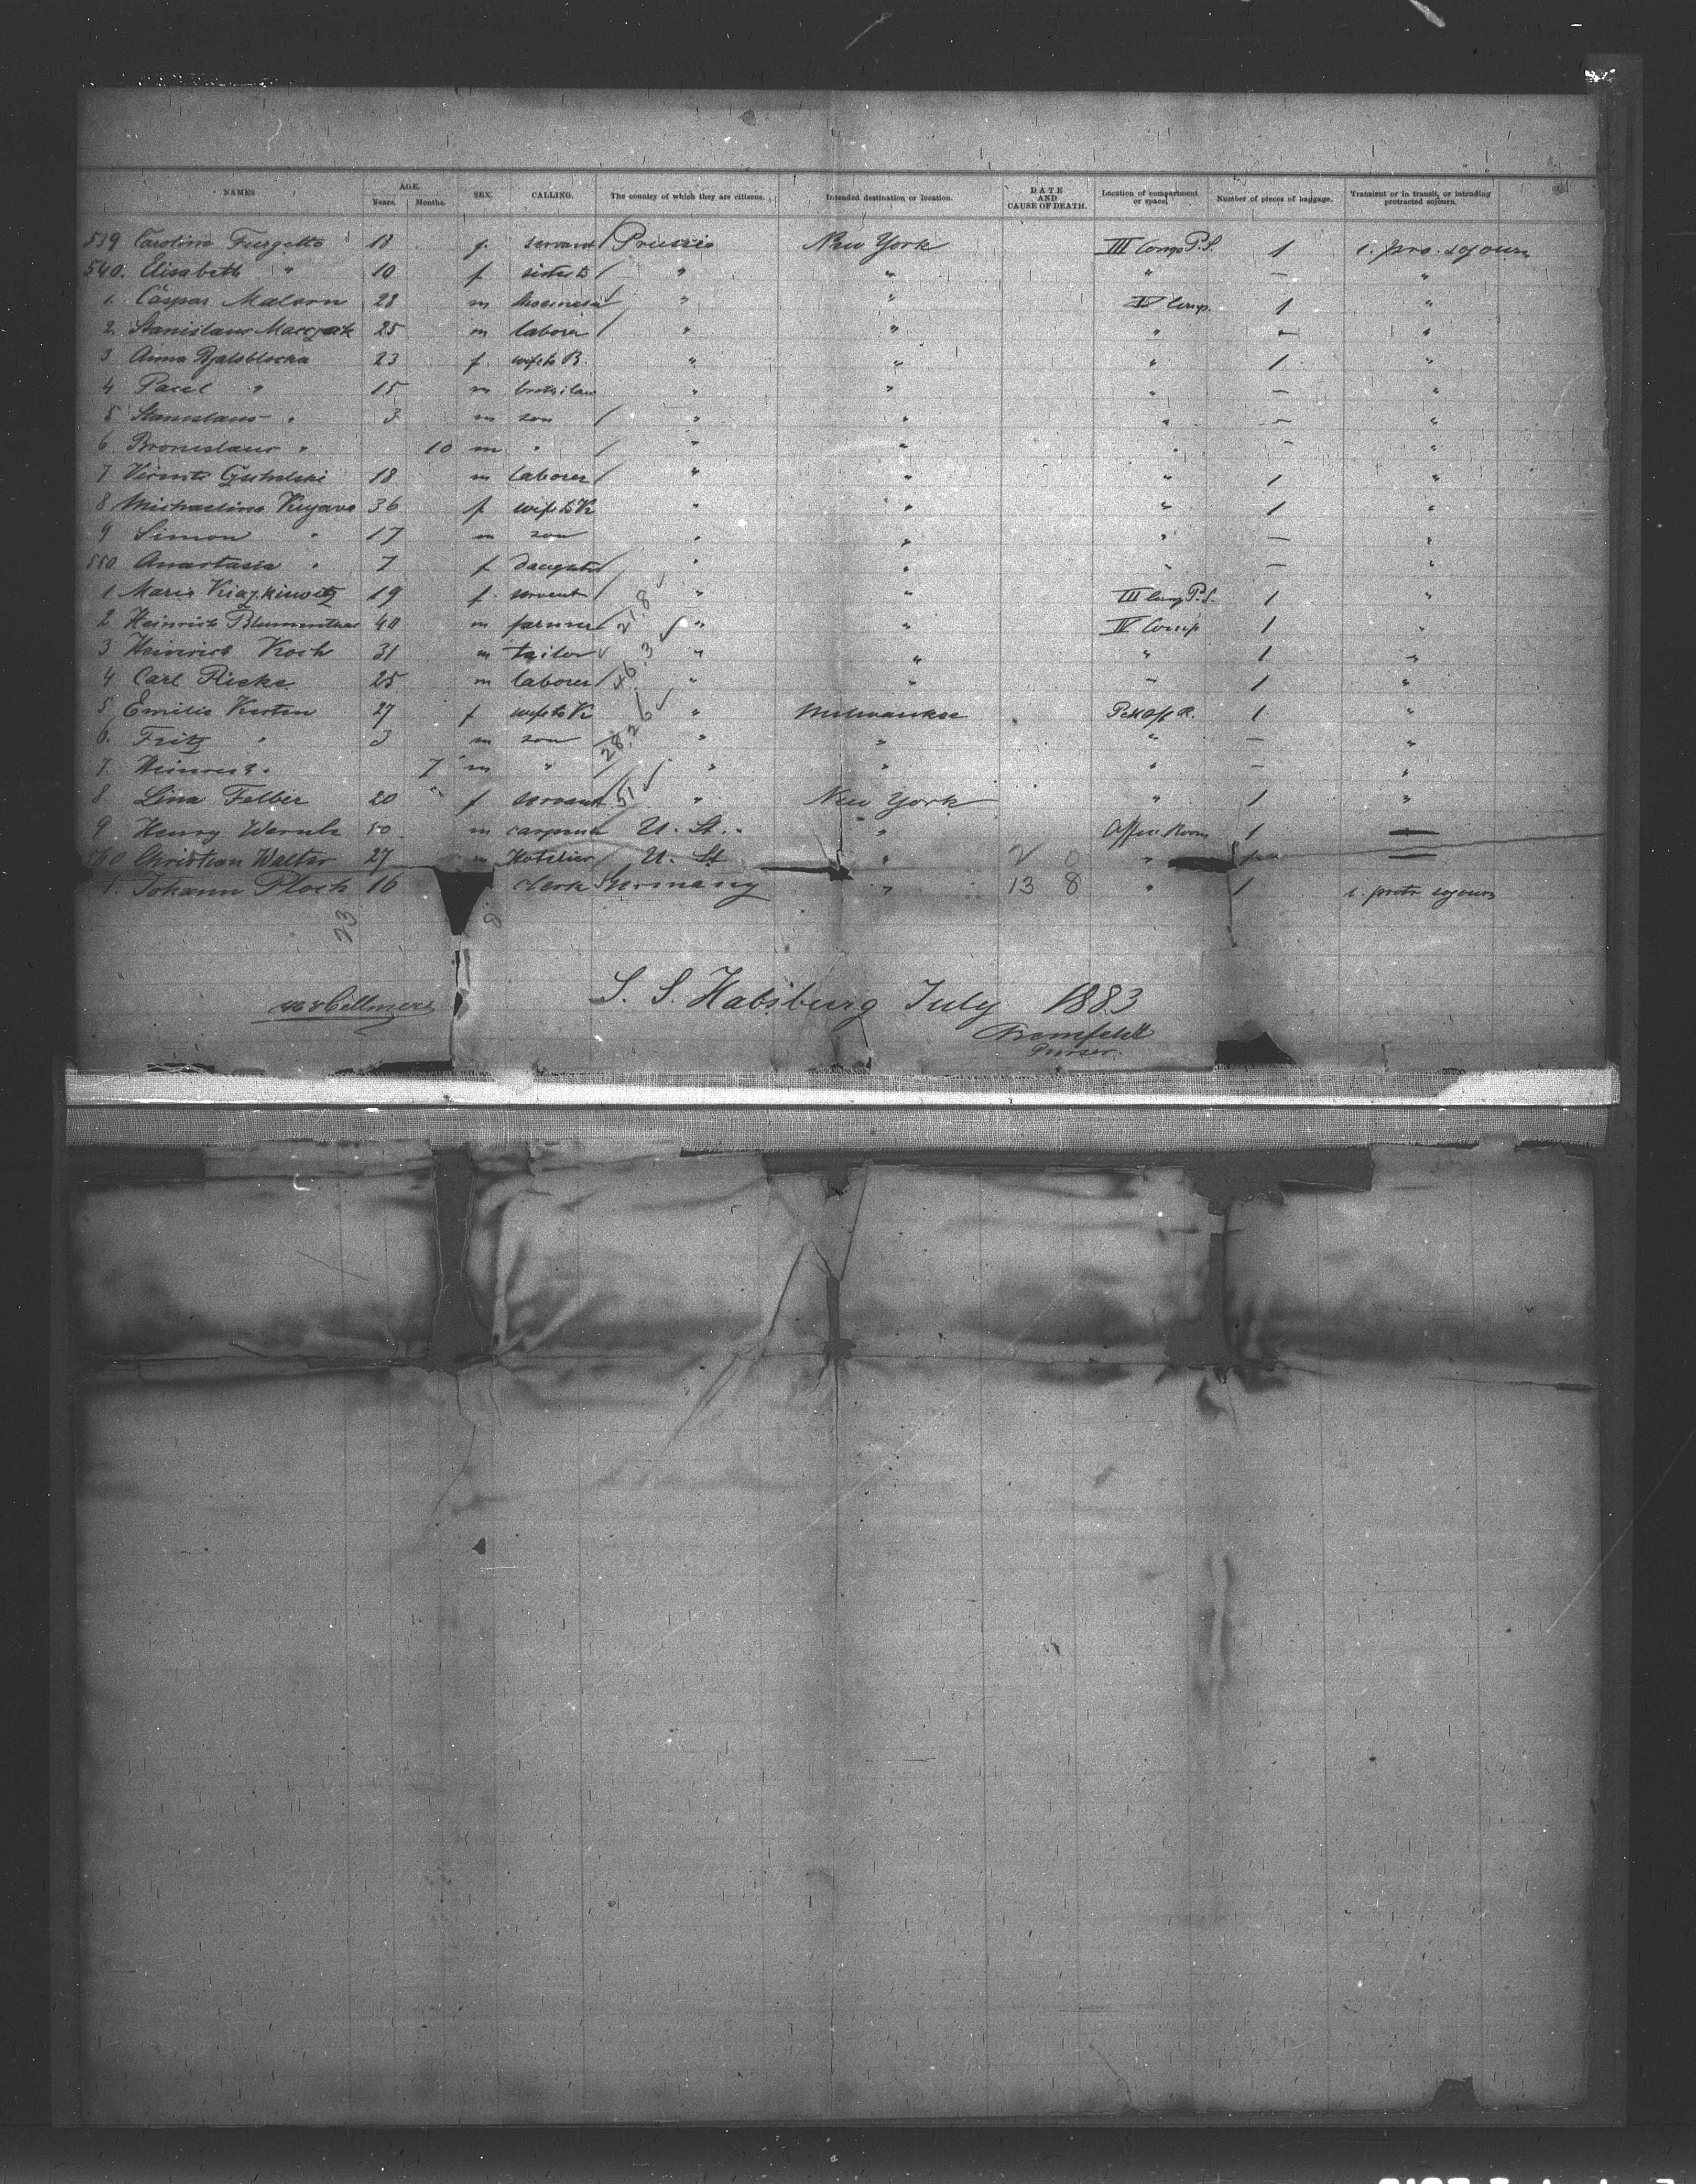 NAMES AGE. Years. Months. SEX. CALLING. The country of which they are citizens. Intended destination or location. DATE AND CAUSE OF DEATH. Location of compartment or space. Number of pieces of baggage. Transient or in transit, or intending protracted sojourn.
539 Carolina 18 f. servant Prussia New York III Comp P.S. 1 i. pro. sojourn
540. Elisabeth " 10 f sister to " " " — "
1. Caspar Malson 28 m " " IV Comp. 1 "
2. Stanislaus Marczak 25 m laborer " " " — "
3 Anna 23 f. wife to B. " " " 1 "
4 " 15 m " " " — "
5 Stanislaus " 3 m son " " " — "
6 Bronislaus " 10 m " " " " —
7 18 m laborer " " " 1 "
8 Michaelina 36 f wife to K " " " 1 "
9 Simon " 17 m son " " " — "
550 Anastasia " 7 f daughter " " " —
1 Marie 19 f. servant " " III Comp P.S. 1 "
2 Heinrich Blumenthal 40 m farmer 21.8 " " IV Comp 1 "
3 Heinrich Koch 31 m tailor 46.3 " " " 1 "
4 Carl Rieke 25 m laborer " " " 1 "
5 Emilie Kersten 27 f wife to K " Milwaukee 1 "
6. Fritz " 3 m son 28.26 " " " — "
7. Heinrich " 7 m " " " " — "
8 Lina Felber 20 f servant 51 " New York " 1 "
9 Henry 50 m U. St. " Room 1 —
560 Christian Walter 27 m Hotelier U. St " 2 0 " —
1. Johann Ploch 16 clerk Germany " 13 8 " 1 i. protr sojourn
23
S. S. Habsburg July 1883
Purser.